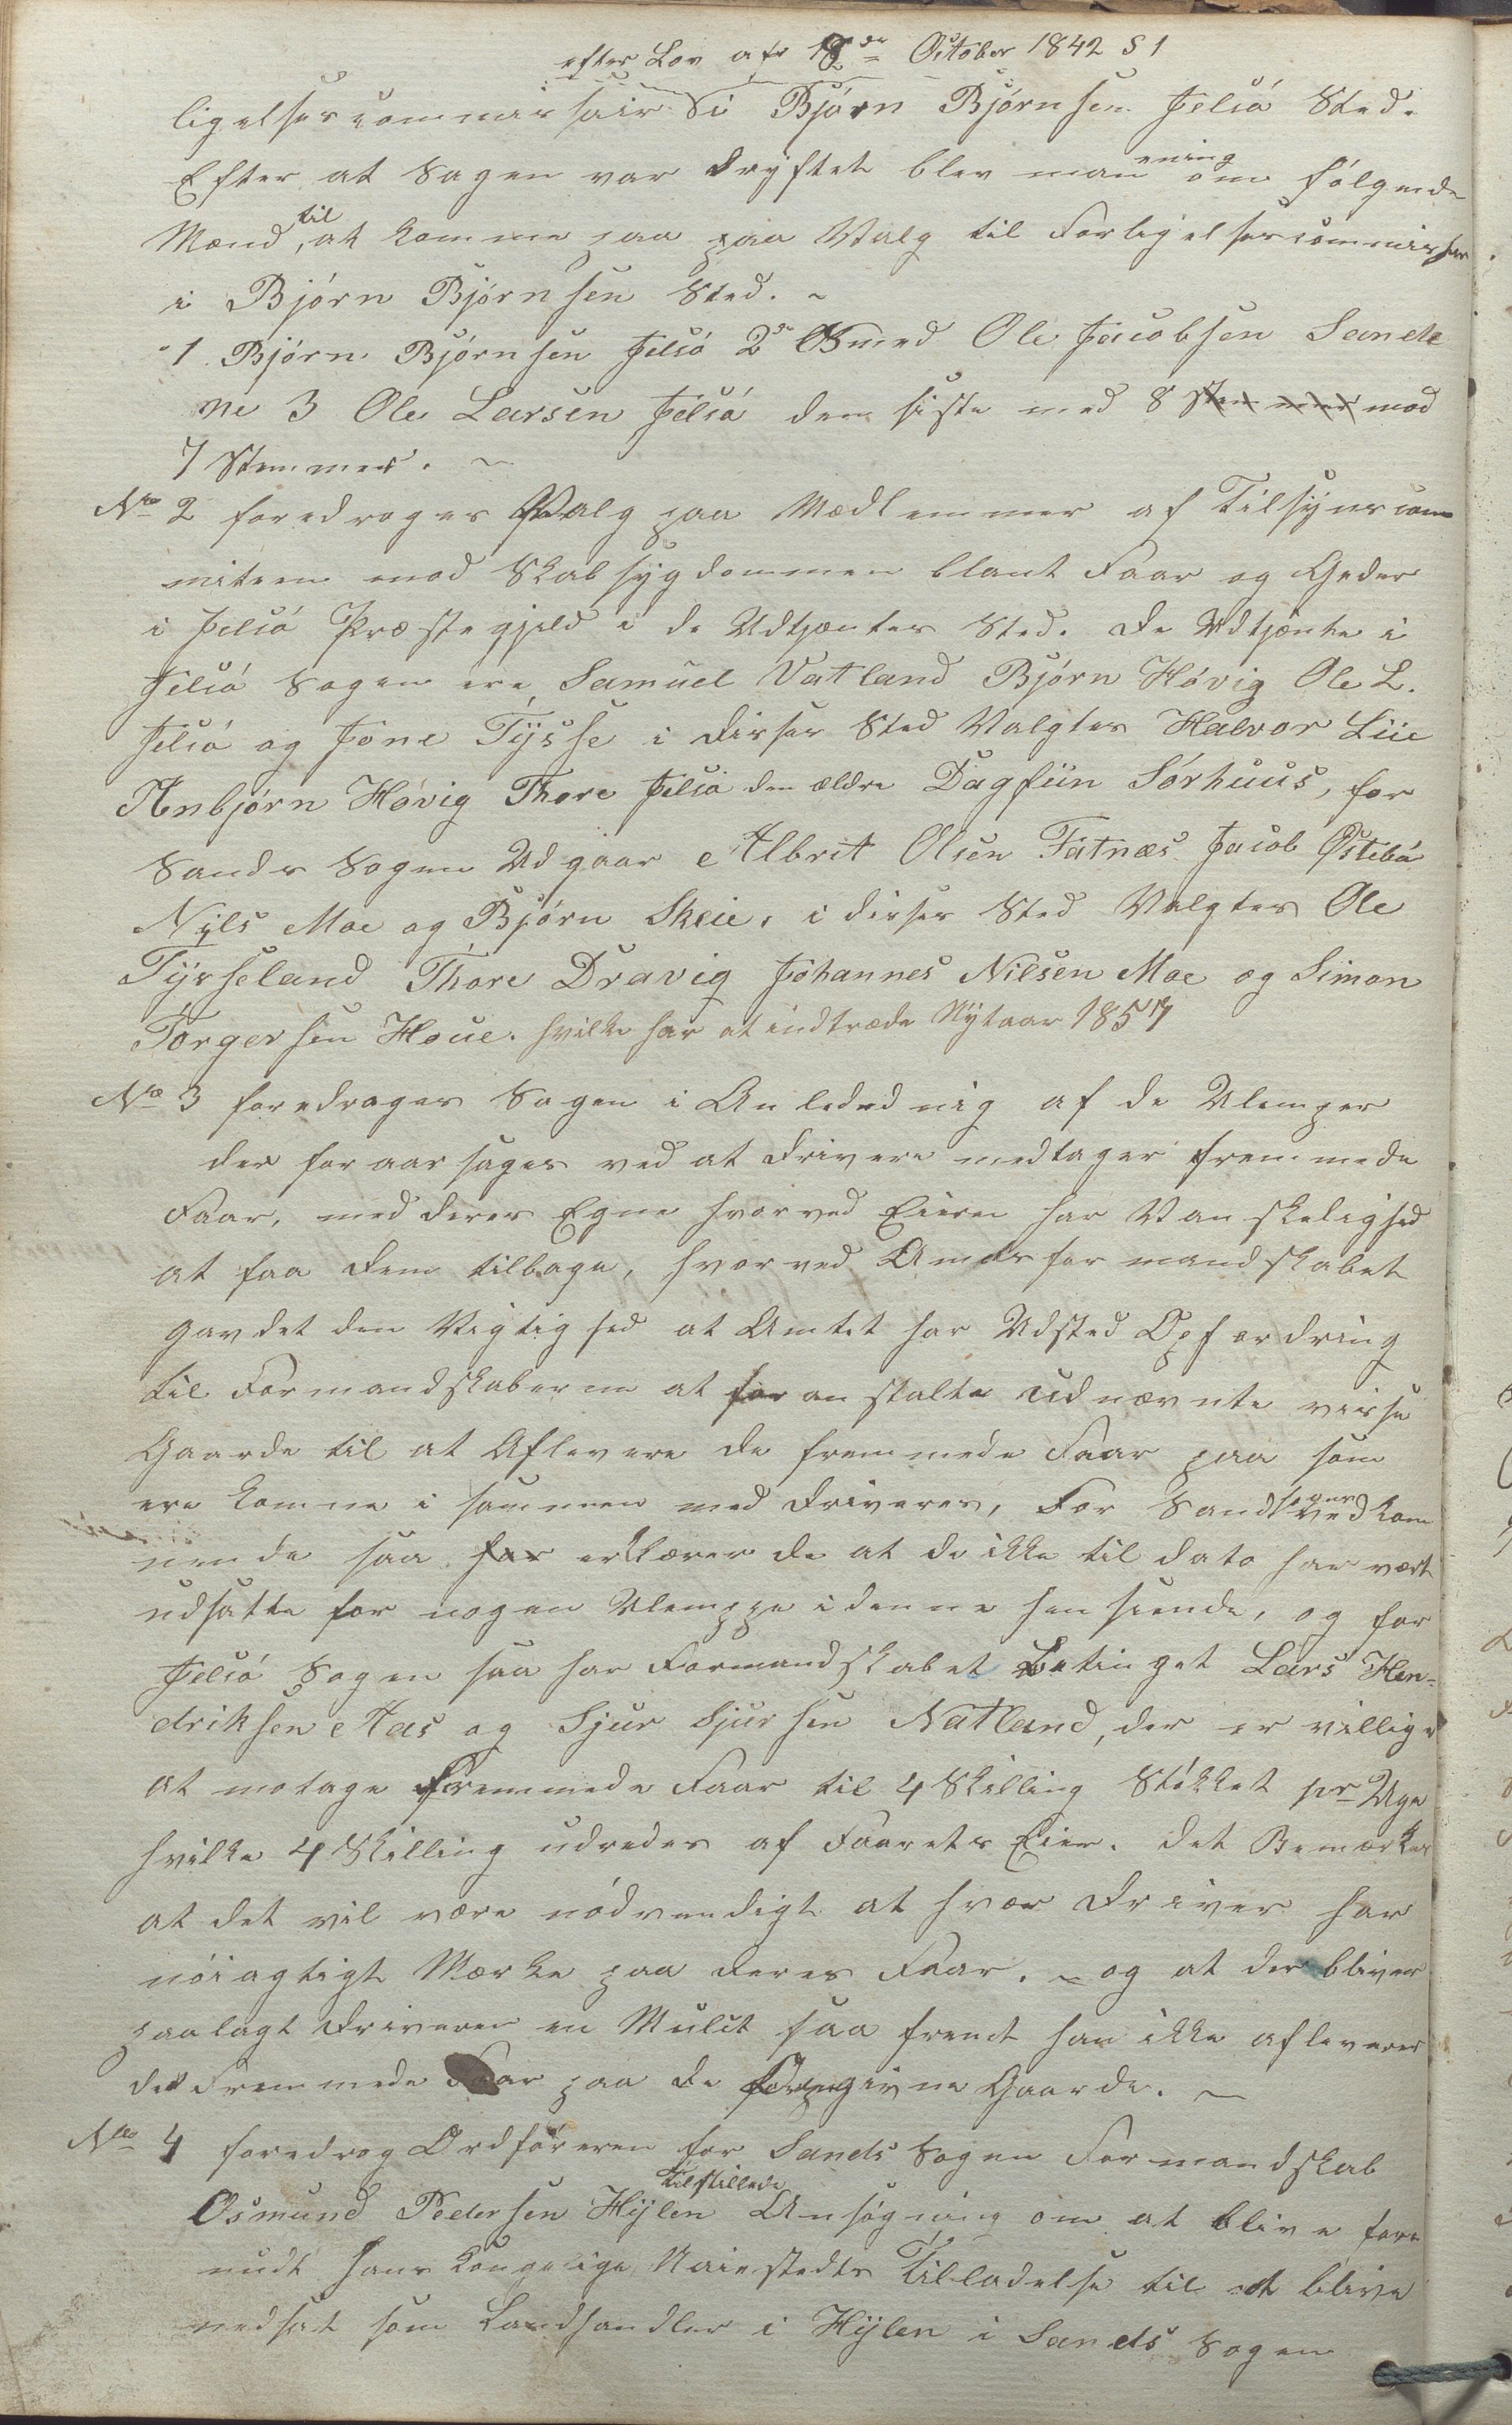 efter Lov af 12de October 1842 § 1
ligelsescommissair i Bjórn Bjórnsen Jelsó Sted.
Efter at Sagen var dryftet blev man ening om fólgende
Mænd, til at komme paa paa Valg til Forligelsescommissær
i Bjórn Bjórnsen Sted. ~
1 Bjórn Bjórnsen Jelsó 2de Ole Jacobsen Sande
ne 3 Ole Larsen Jelsó den siste med 8 Stemmer mod
7 Stemmer. ~
No 2 foredroges Valg paa Medlemmer af Tilsÿnscom
miteen mod Skabsÿgdommen blant Faar og Geder
i Jelsó Præstegjeld i de Udtjænters Sted. De Udtjænte i
Jelsó Sogen ere Samuel Vatland Bjórn Hóvig Ole L.
Jelsó og Jone Tÿsse i disses Sted Valgtes Halvor Liie
Anbjórn Hóvig Thore Jelsó den ældre Dagfiin Sórhuus, for
Sands Sogen Udgaar Albrit Olsen Fatnæs Jacob Østebó
Nils Moe og Bjórn Skeie, i disses Sted Valgtes Ole
Tÿsseland Thore Dravig Johannes Nilsen Moe og Simon
Torgersen Houe. hvilke har at indtræde Nÿtaar 1857
No 3 foredroges Sagen i Anledednig af de Ulemper
der foraarsages ved at Drivere medtager fremmede
Faar, med deres Egne hvorved Eieren har Vanskelighed
at faa dem tilbage, hvorved Amdsformandskabet
gav det den Vigtighed at Amtet har Udsted Opfordring
til Formandskaberne at foranstalte udnævnte visse
Gaarde til at Aflevere de fremmede Faar paa som
ere komne i sammen med Driveres, For Sands sogens vedkom
nende saa har erklærer de at de ikke til dato har vært
udsatte for nogen Ulemppe i denne hensiende, og for
Jelsó Sogen saa har Formandskabet Betinget Lars Hen-
driksen Aas og Sjur Sjursen Natland, der er villige
at motage Fremmede Faar til 4 Skilling Stókket pr Uge
hvilke 4 Skilling udredes af Faarets Eier. Det Bemærkes
at det vil være nódvendigt at hver Driver har
nóiagtigt Mærke paa deres Faar. ~ og at der bliver
paalagt Driveren en Mulct saa fremt han ikke afleverer
det Fremmede Faar paa de givne Gaarde. ~
No 4 foredrog Ordfóreren for Sands Sogen Formandskab
Osmund Pedersen Hÿlen tilstillede Ansógning om at blive fore
undt Hans Kongelige Maiestedts Tilladelse til at blive
nedsat som Landhandler i Hÿlen i Sands Sogen